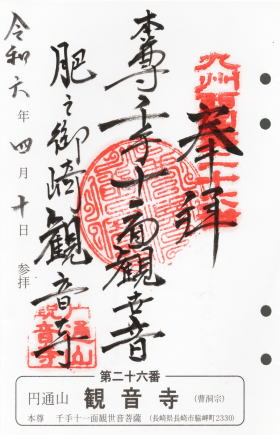 奉拝
本尊千手十一面観世音
肥之御崎観音寺
令和六年四月十日 参拝
第二十六番
円通山 観音寺 (曹洞宗)
本尊 千手十一面観世音菩薩 (長崎県長崎市脇岬町2330)